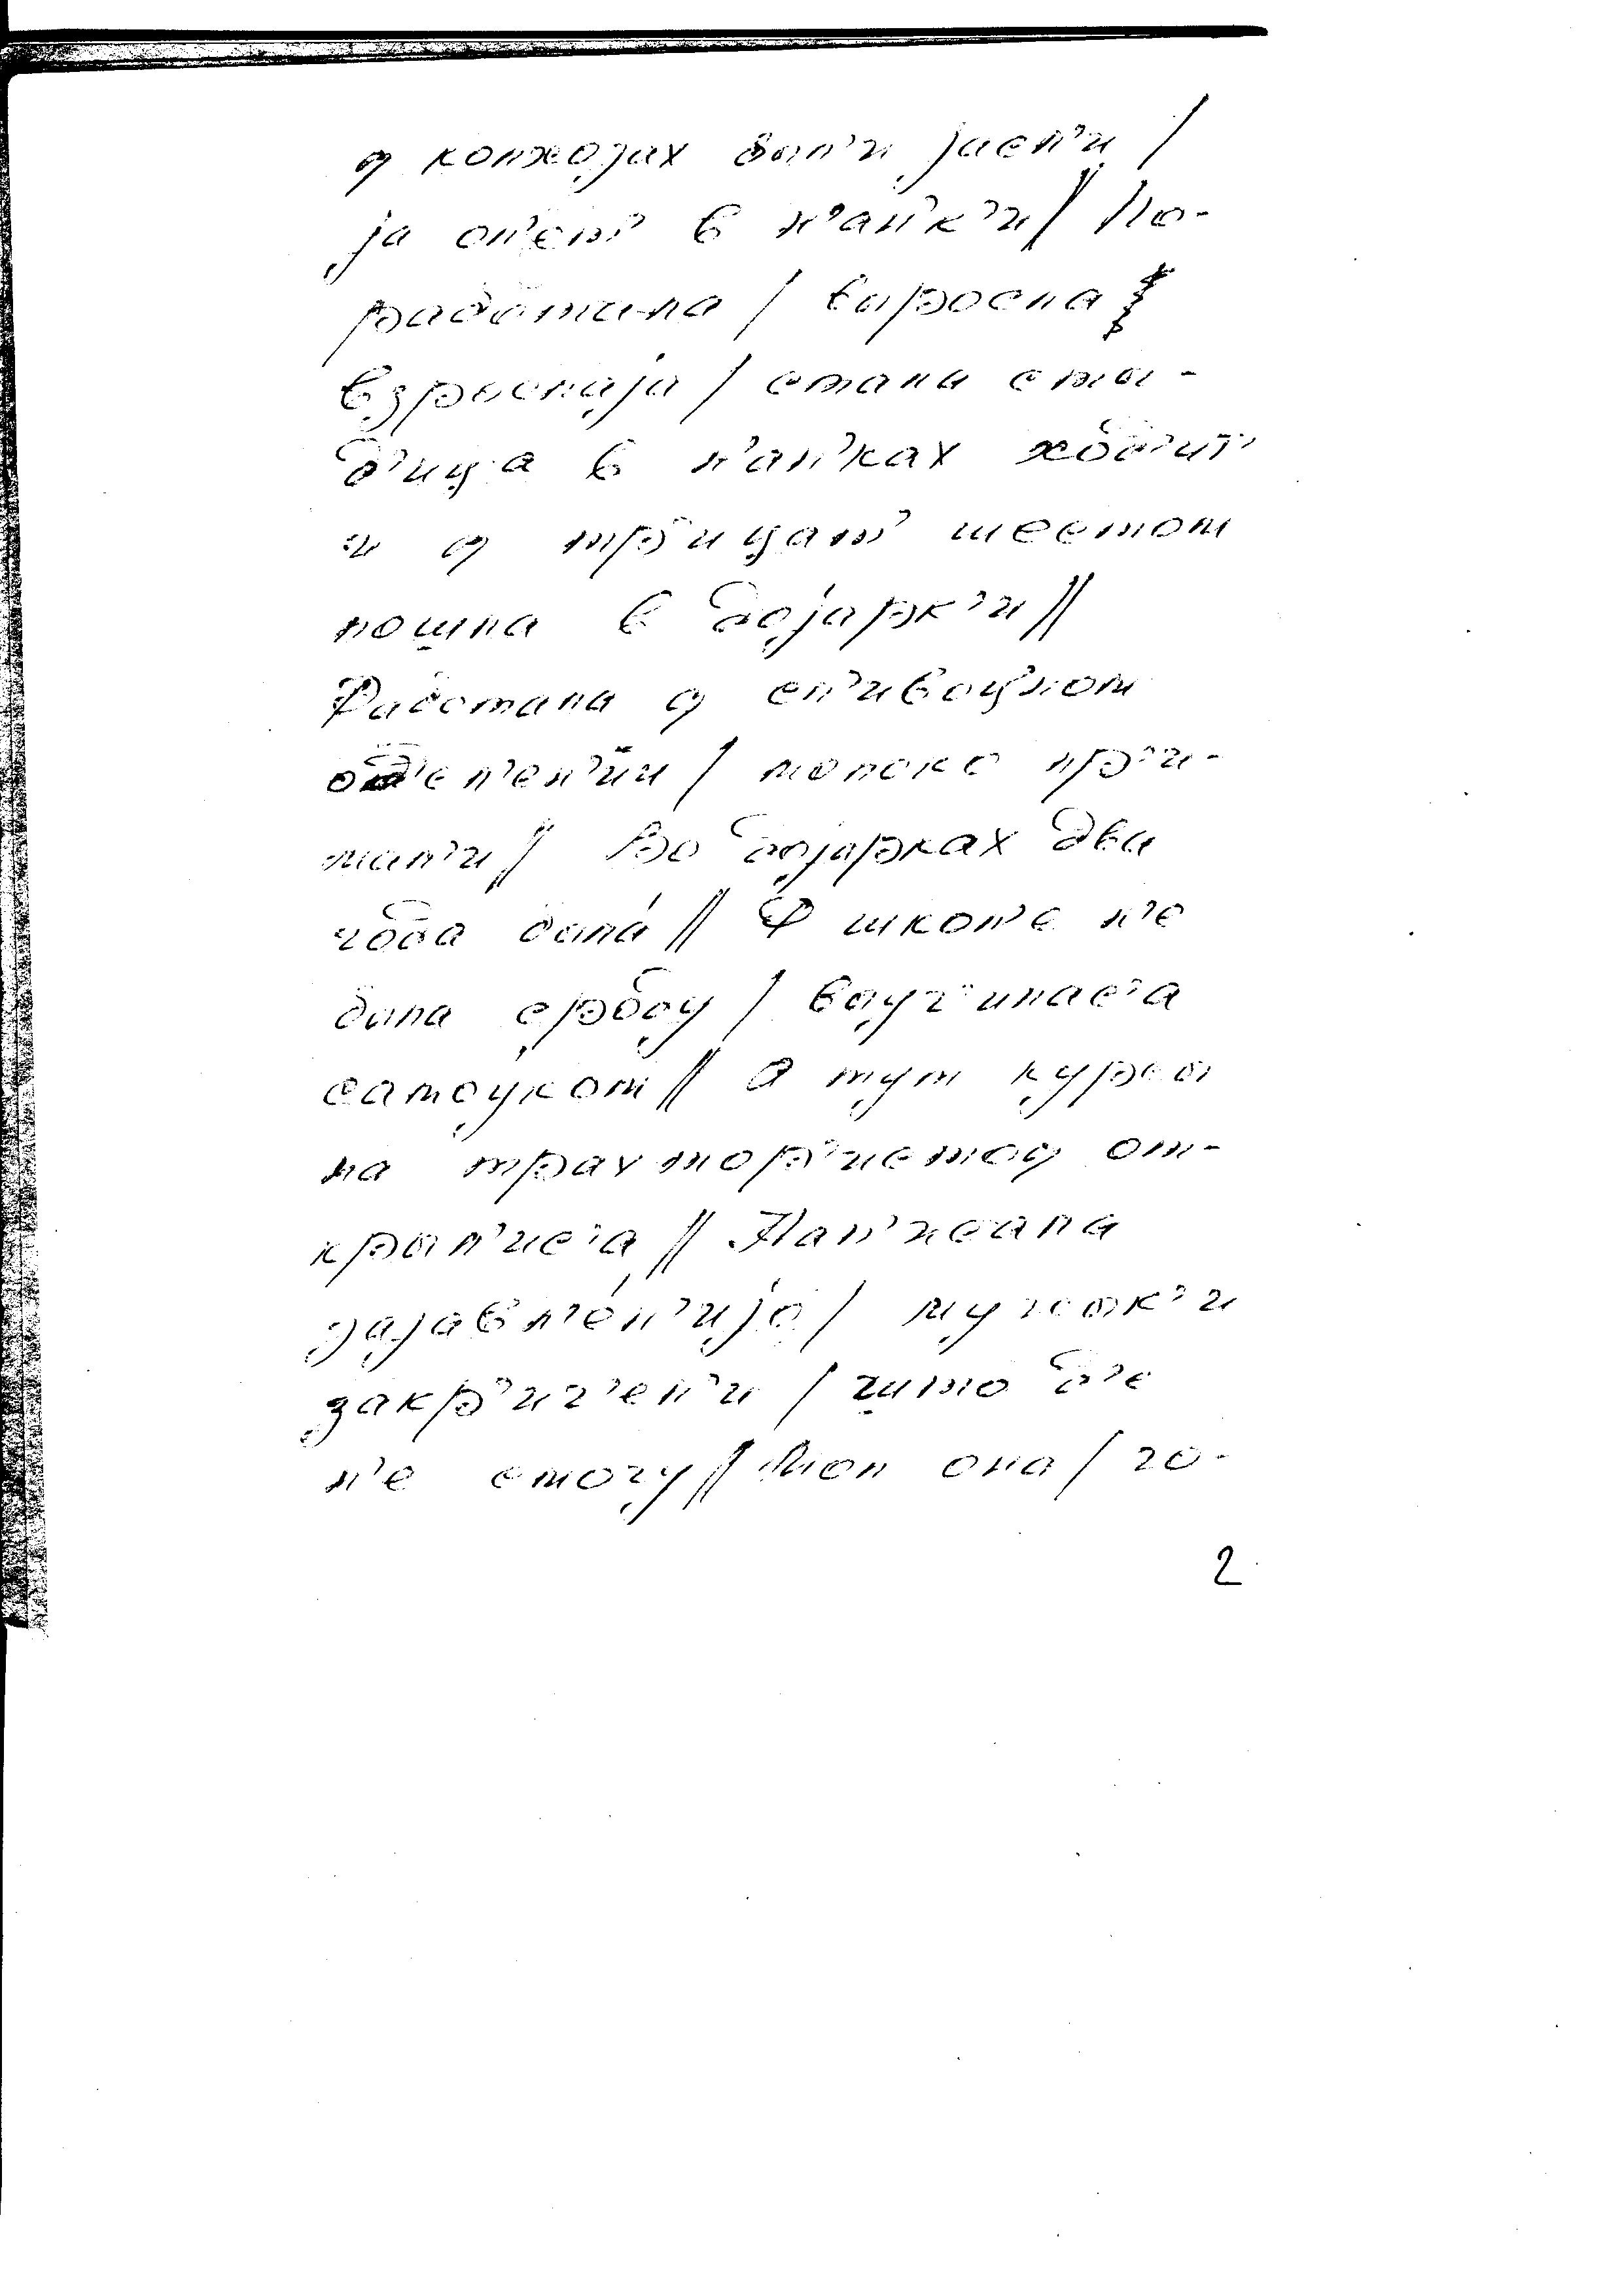 ў колхозах был'и јасл'и /
ја оп'ет' в н'ан'к'и // По-
работала / выросла
взрослаја / стала сты-
д'ица в н'ан'ках ход'ит'
и ў тр'ицат' шестом
пошла в дојарк'и //
Работала ў сл'ивоцном
од'ел'ен'ии / молоко пр'и-
мал'и // Во дојарках два
года была́ // Ф школ'е н'е
была сроду / выуч'илас'а
самоуком // А тут курсы
на трахтор'истоў от-
крыл'ис'а // Нап'исала
зајавл'е́н'ијо / мужык'и
закр'ич'ел'и / што д'е
н'е смогу // Мол она / го-
2